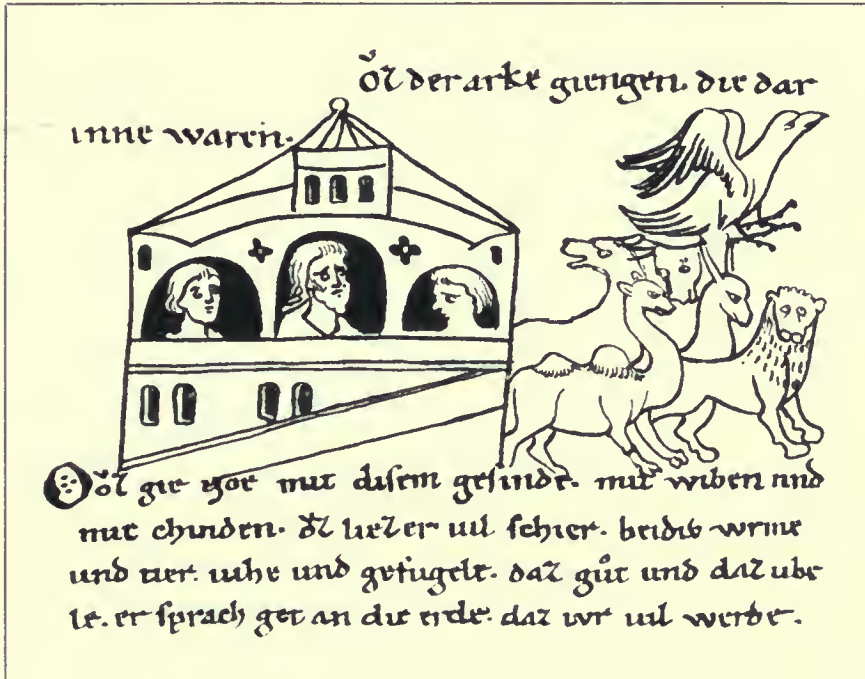 ůz der arke giengen. die dar
inne waren.
Oůz gie noe mit disem gesinde. mit wiben und
mit chinden. ůz liez er uil schier. beidiv wrme
und tier. uihe und gefugele. daz gůt und daz ube
le. er sprach get an die erde. daz iwr uil werde.